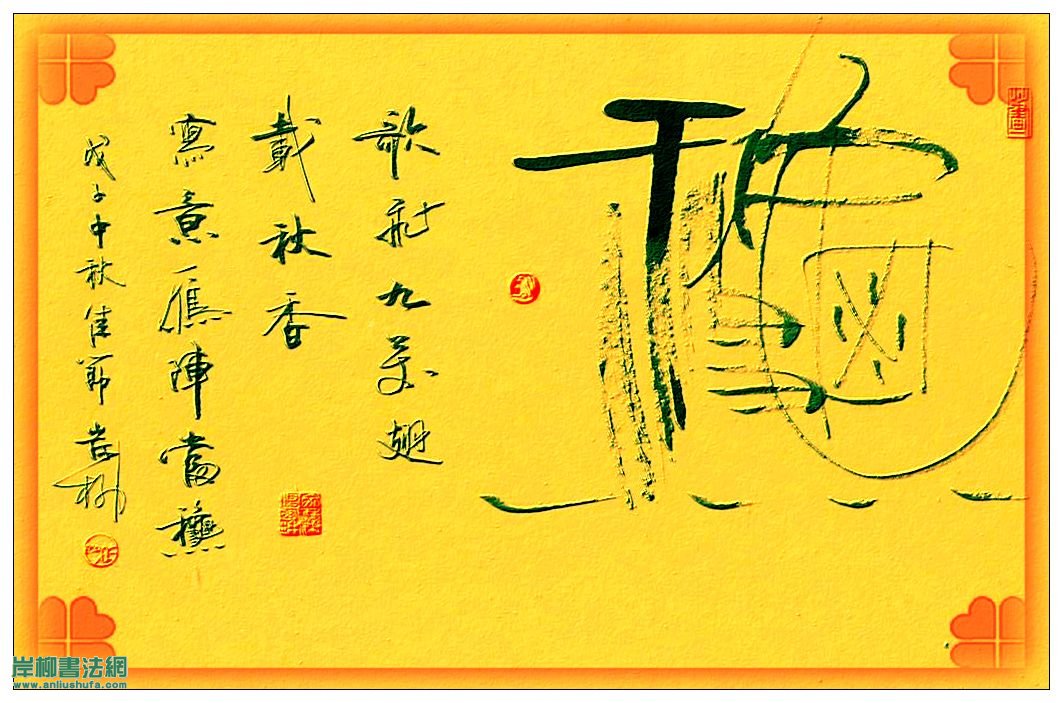 歌飛九翅
載秋香
寫意雁陣當
戊子中秋佳節岸柳
岸柳書法網
www.anliushufa.com